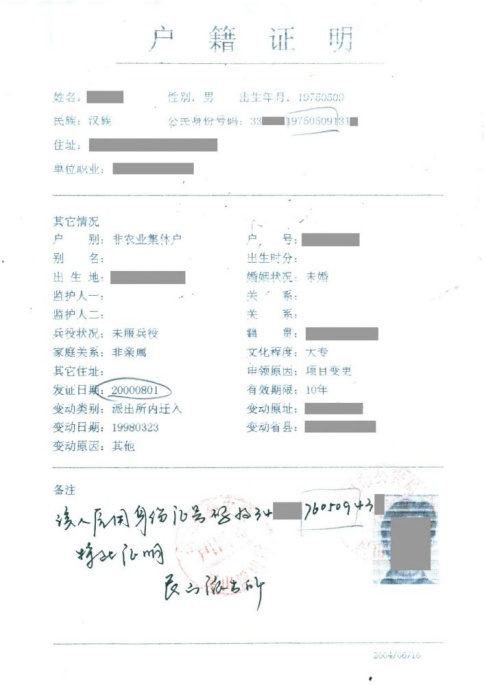 户籍证明
姓名: 性别: 男 出生年月: 19760509
民族: 汉族 公民身份号码: 33 19750509131
住址:
单位职业:
其它情况
户 别: 非农业集体户 户 号:
别 名: 出生时分:
出 生 地: 婚姻状况: 未婚
监护人一: 关 系:
监护人二: 关 系:
兵役状况: 未服兵役 籍 贯:
家庭关系: 非亲属 文化程度: 大专
其它住址: 申领原因: 项目变更
发证日期: 20000801 有效期限: 10年
变动类别: 派出所内迁入 变动原址:
变动日期: 19980323 变动省县:
变动原因: 其他
备注
该人原用身份证号码为34 76050943
特此证明
派出所
2004/06/16